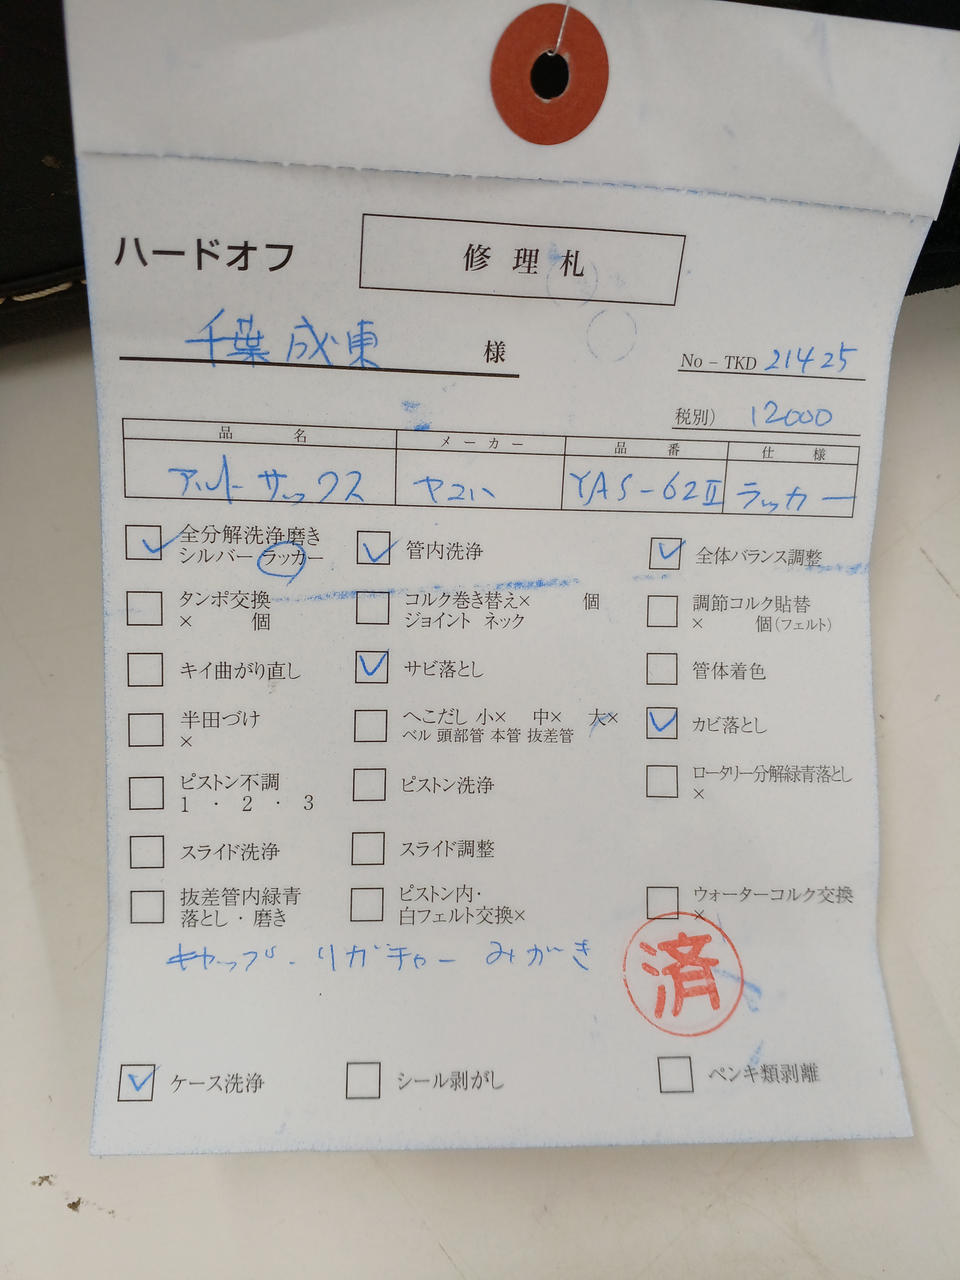 ハードオフ
修理札
千葉成東 様
No-TKD 21425
税別) 12000
品名 メーカー 品番 仕様
アルトサックス ヤマハ YAS-62Ⅱ ラッカー
全分解洗浄磨き
シルバー ラッカー
管内洗浄
全体バランス調整
タンポ交換
× 個
コルク巻き替え× 個
ジョイント ネック
調節コルク貼替
× 個(フェルト)
キイ曲がり直し
サビ落とし
管体着色
半田づけ
×
へこだし 小× 中× 大×
ベル 頭部管 本管 抜差管
カビ落とし
ピストン不調
1・2・3
ピストン洗浄
ロータリー分解緑青落とし
×
スライド洗浄
スライド調整
抜差管内緑青
落とし・磨き
ピストン内・
白フェルト交換×
ウォーターコルク交換
×
キャップ・リガチャー みがき
済
ケース洗浄
シール剥がし
ペンキ類剥離